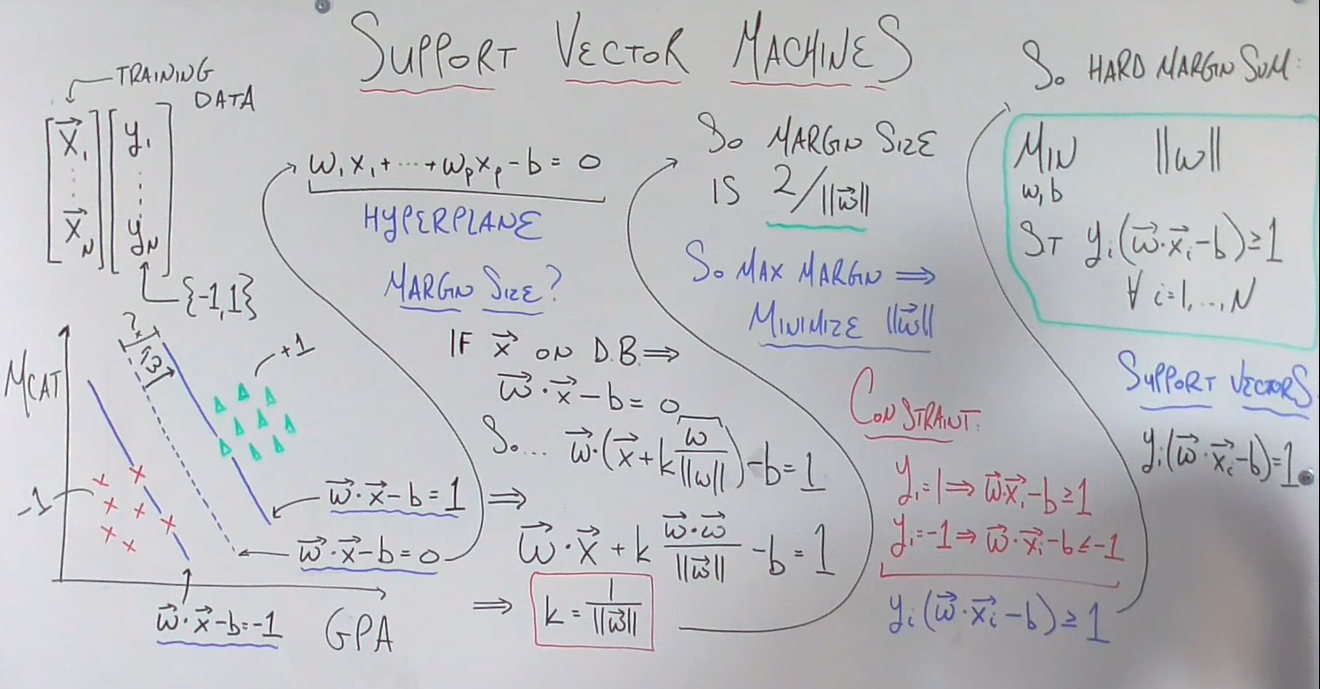 SUPPORT VECTOR MACHINES
TRAINING DATA
[x⃗₁ ⋮ x⃗_N] [y₁ ⋮ y_N]
{-1,1}
MCAT
GPA
+1
-1
?
w⃗
w⃗·x⃗-b=1
w⃗·x⃗-b=0
w⃗·x⃗-b=-1
w₁x₁+⋯+w_px_p-b=0
HYPERPLANE
MARGIN SIZE?
IF x⃗ ON D.B. ⇒
w⃗·x⃗-b=0
SO... w⃗·(x⃗+k w⃗/||w||)-b=1
⇒ w⃗·x⃗+k w⃗·w⃗/||w⃗||-b=1
⇒ k=1/||w⃗||
SO MARGIN SIZE
IS 2/||w⃗||
SO MAX MARGIN ⇒
MINIMIZE ||w⃗||
CONSTRAINT:
yᵢ=1⇒w⃗·x⃗ᵢ-b≥1
yᵢ=-1⇒w⃗·x⃗ᵢ-b≤-1
yᵢ(w⃗·x⃗ᵢ-b)≥1
SO HARD MARGIN SVM:
MIN ||w||
w,b
ST yᵢ(w⃗·x⃗ᵢ-b)≥1
∀ i=1,...,N
SUPPORT VECTORS
yᵢ(w⃗·x⃗ᵢ-b)=1